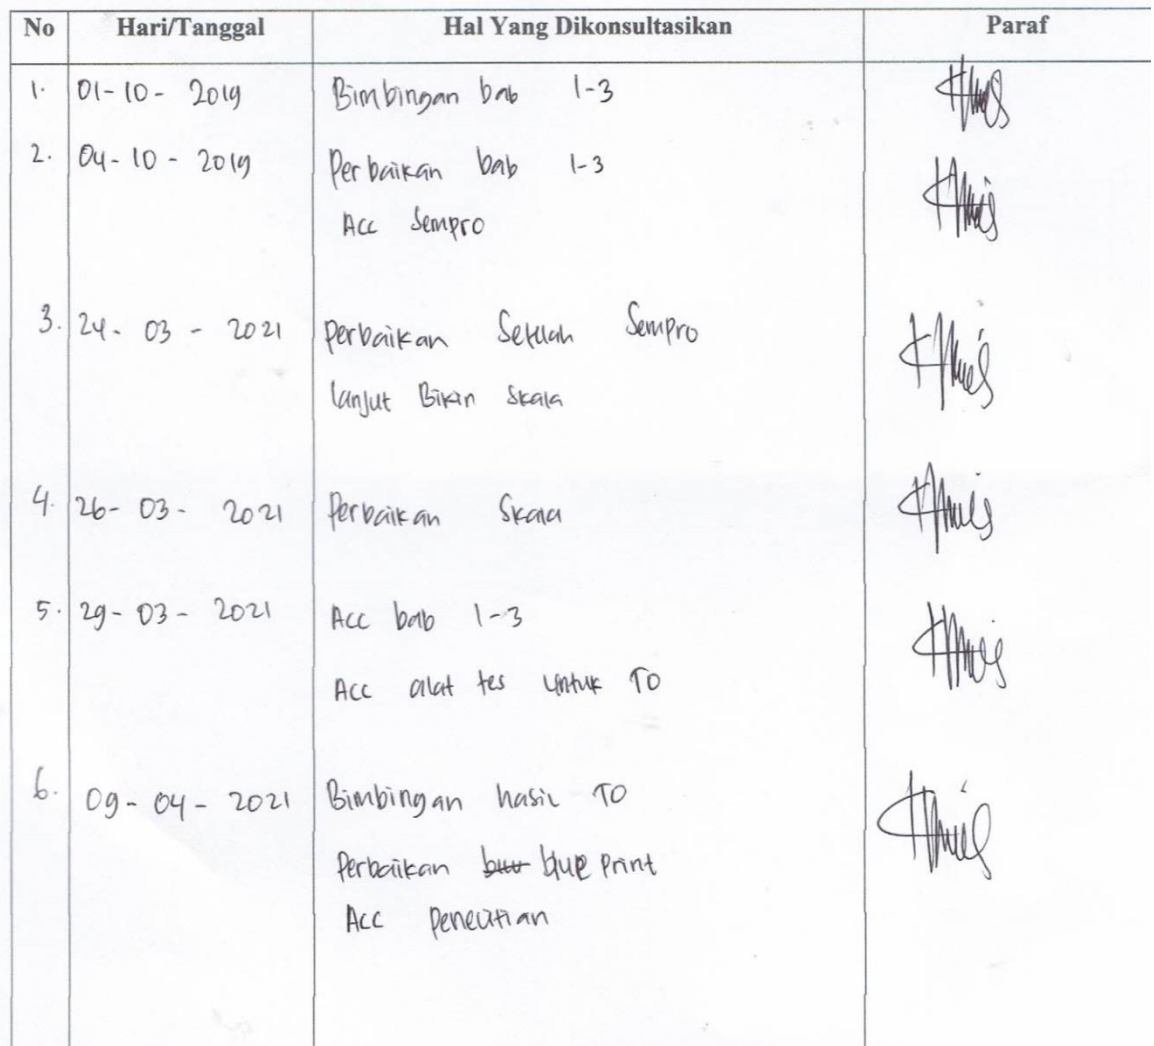 No Hari/Tanggal Hal Yang Dikonsultasikan Paraf
1. 01-10-2019 Bimbingan bab 1-3
2. 04-10-2019 Perbaikan bab 1-3
Acc Sempro
3. 24-03-2021 Perbaikan Setelah Sempro
lanjut Bikin Skala
4. 26-03-2021 Perbaikan Skala
5. 29-03-2021 Acc bab 1-3
Acc alat tes untuk TO
6. 09-04-2021 Bimbingan hasil TO
Perbaikan blue print
Acc penelitian